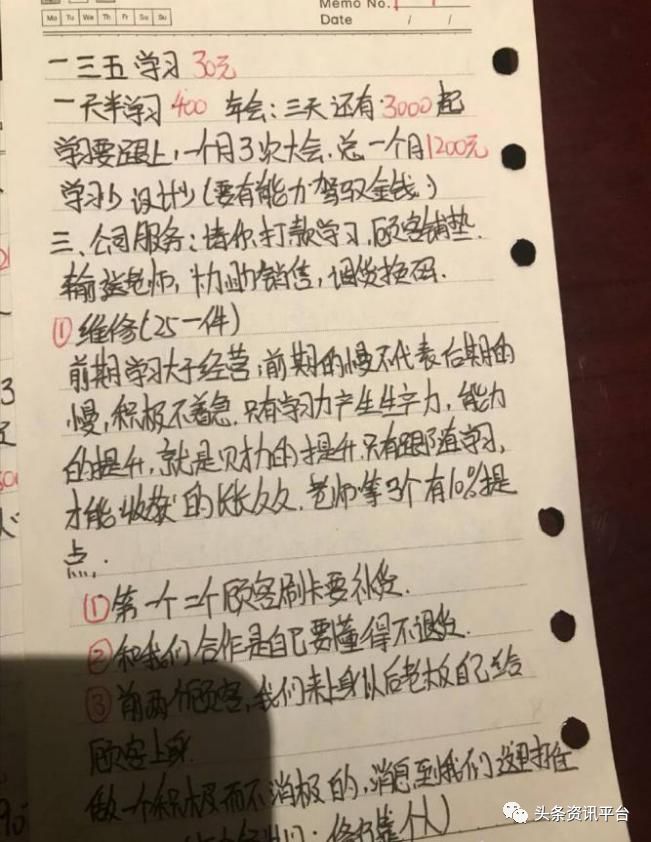 Memo No.
Mo Tu We Th Fr Sa Su
Date / /
一三五学习 30元
一天半学习 400 年会:三天还有 3000起
学习要跟上,一个月3次大会.总一个月1200元
学习 设计 (要有能力驾驭金钱.)
三、公司服务:请你打款学习,顾客铺垫.
输送老师,协助销售,调货换码.
①维修(25一件)
前期学习大于经营,前期的慢不代表后期的
慢,积极不着急.只有学习力产生生产力,能力
的提升,就是财力的提升.只有跟随学习,
才能收教的长长久久.老师 每个有10%提
点.
①第一个二个顾客刷卡要补货.
②和我们合作是自己要懂得不退货.
③前两个顾客,我们来上身以后老板自己给
顾客上身.
做一个积极而不消极的,消息到我们这里打住
靠个人)
头条资讯平台